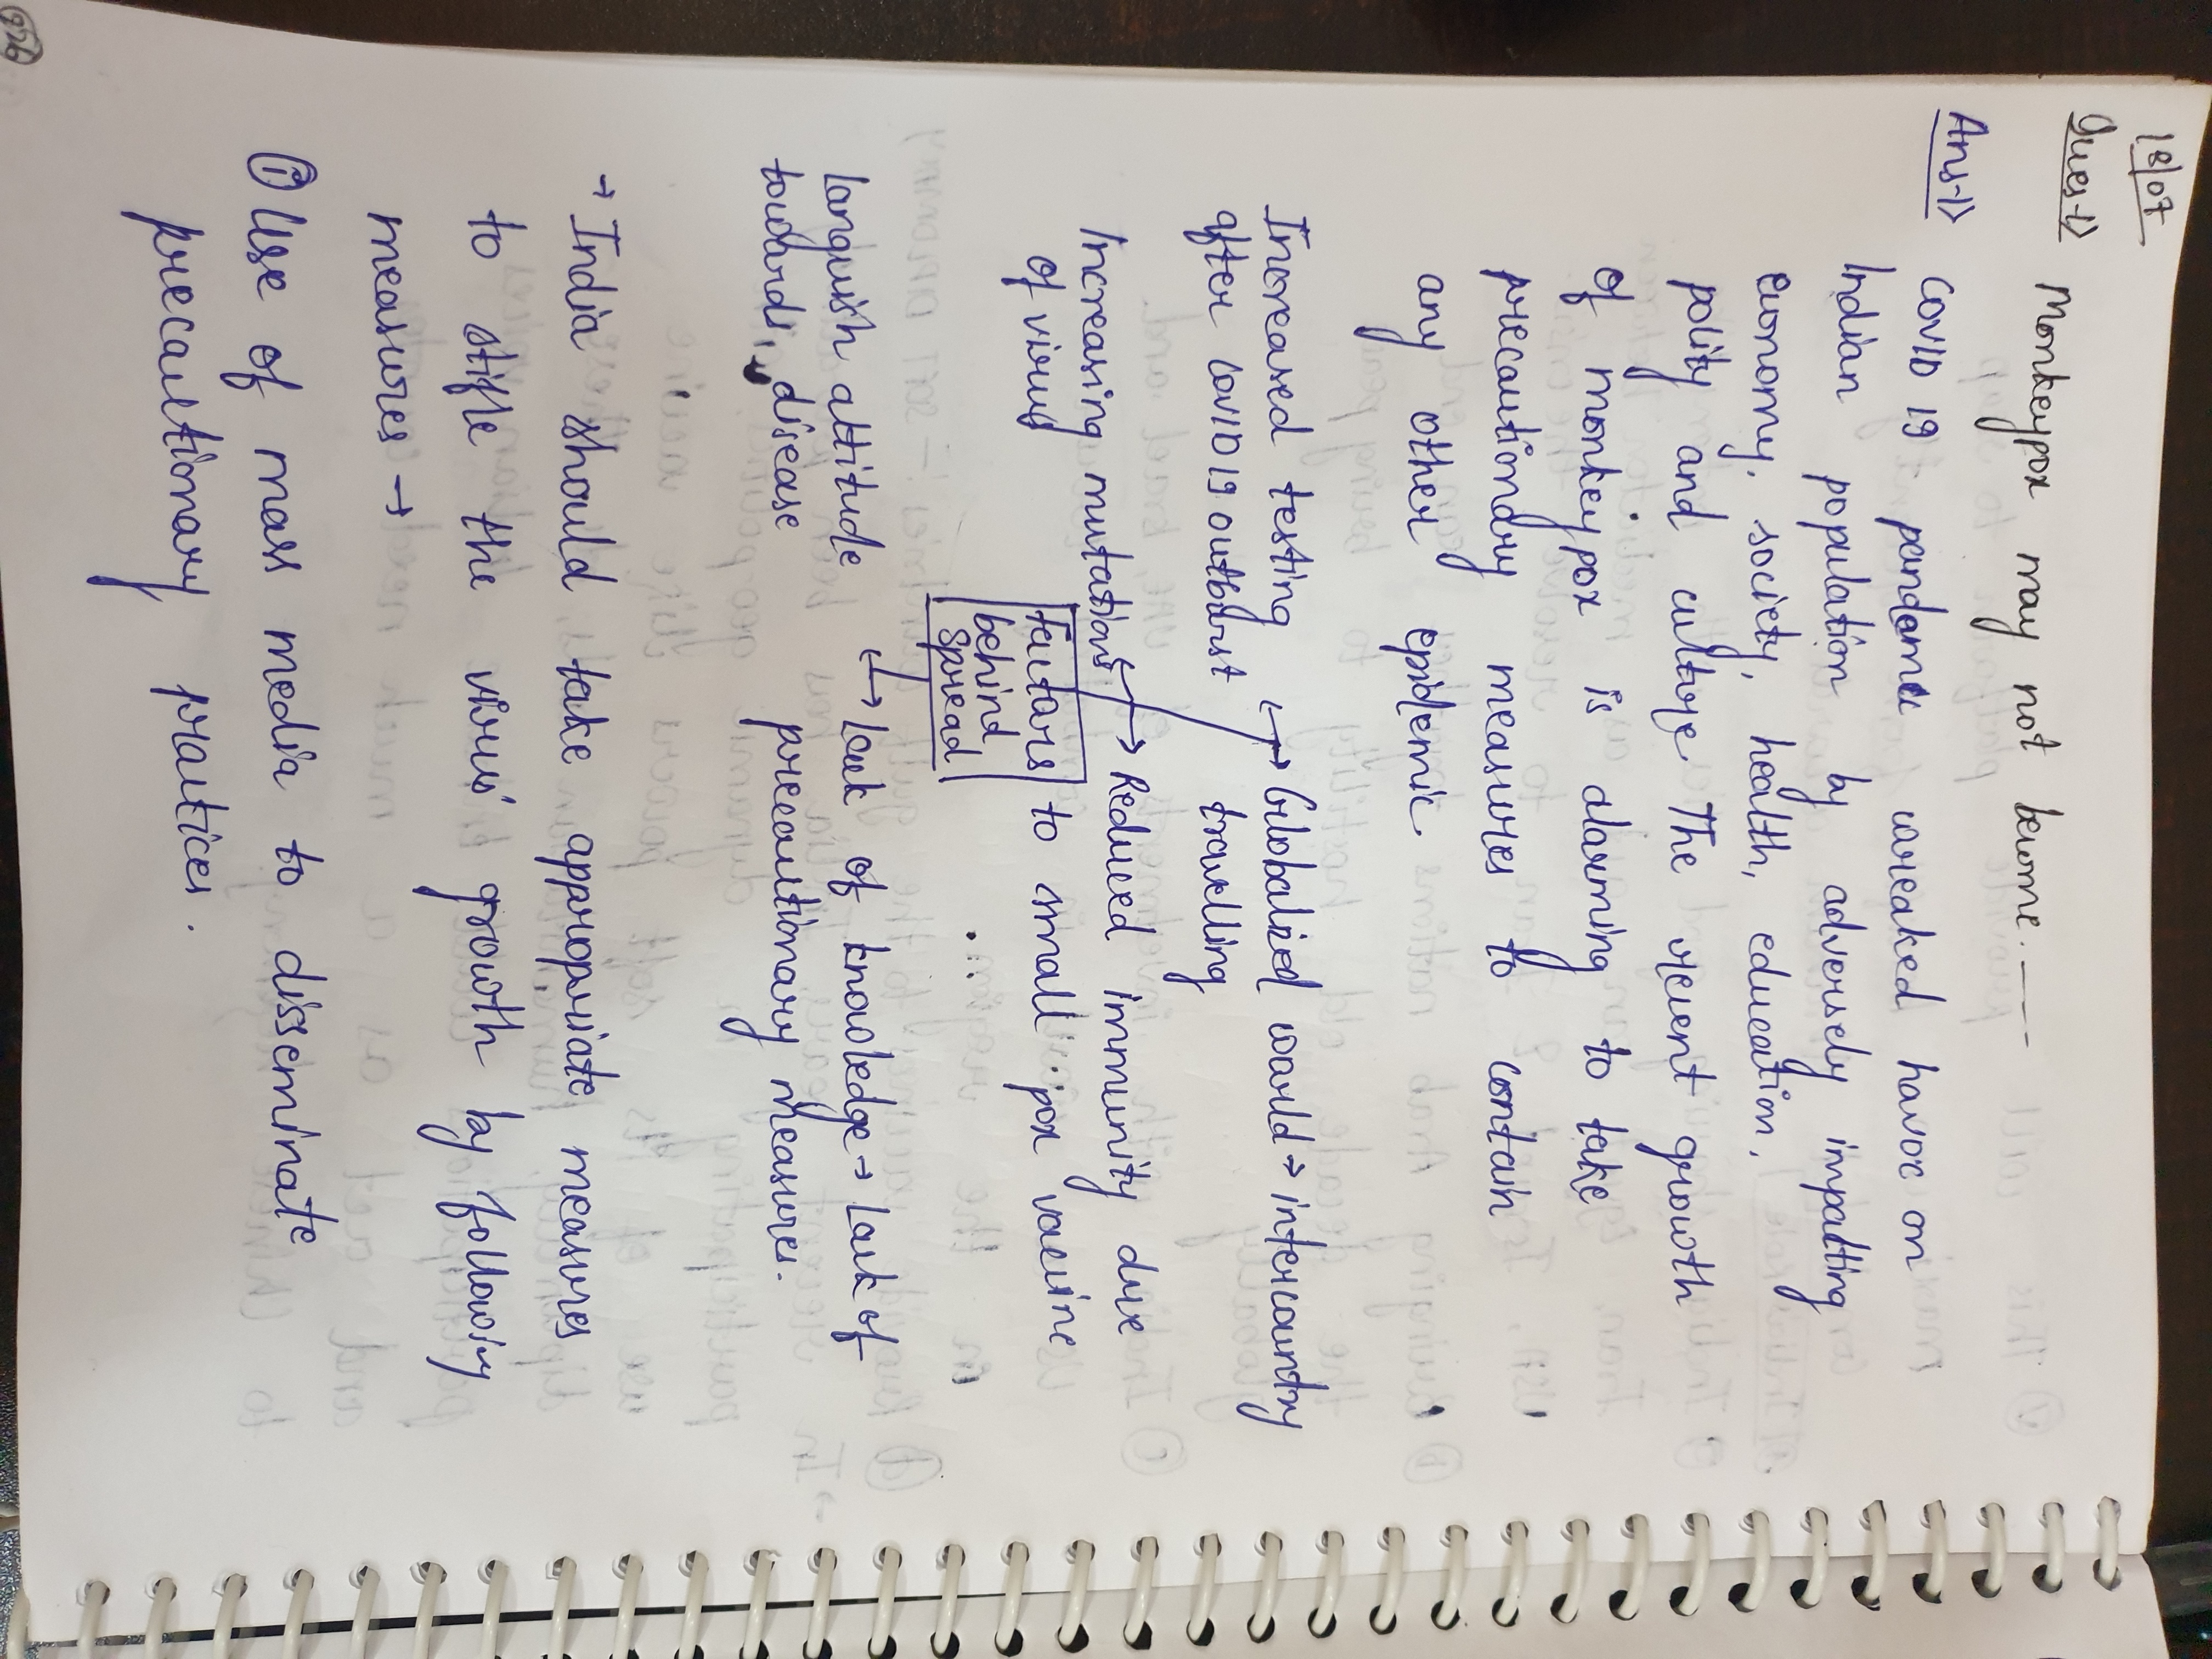 18/07
Ques-1> Monkeypox may not become. ----
Ans-1> COVID 19 pandemic wreaked havoc on
Indian population by adversely impacting
economy, society, health, education,
polity and culture. The recent growth
of monkeypox is alarming to take
precautionary measures to contain
any other epidemic.
Increased testing
after COVID 19 outburst
→ Globalized world → intercountry
travelling
Increasing mutations
of virus
→ Reduced immunity due
to small pox vaccine
Factors
behind
spread
languish attitude
towards disease
→ Lack of knowledge → Lack of
precautionary measures.
→ India should take appropriate measures
to stifle the virus growth by following
measures →
① Use of mass media to disseminate
precautionary practices.